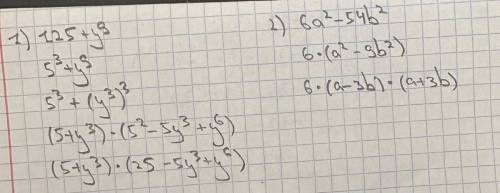 1) 125+y⁹
5³+y⁹
5³+(y³)³
(5+y³)·(5²-5y³+y⁶)
(5+y³)·(25-5y³+y⁶)
2) 6a²-54b²
6·(a²-9b²)
6·(a-3b)·(a+3b)